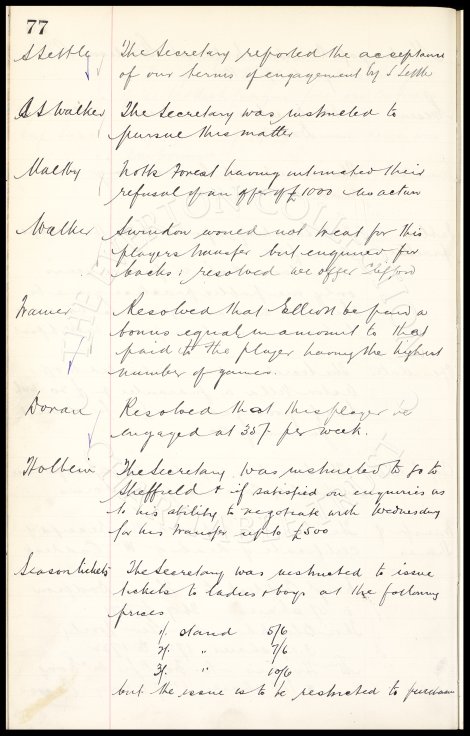 77
S Settle The Secretary reported the acceptance
of our terms of engagement by S Settle
A S Walker The Secretary was instructed to
pursue this matter
Maltby Notts Forest having intimated their
refusal of an offer of £1000 no action
Walker Swindon would not treat for this
players transfer but enquired for
backs; resolved we offer Clifford
Trainer Resolved that Elliott be paid a
bonus equal in amount to that
paid to the player having the highest
number of games.
Doran Resolved that this player be
engaged at 35/- per week.
Holbein The Secretary was instructed to go to
Sheffield & if satisfied on enquiries as
to his ability to negotiate with Wednesday
for his transfer up to £500
Season tickets The Secretary was instructed to issue
tickets to ladies & boys at the following
prices
1/- stand 5/6
2/- " 7/6
3/- " 10/6
but the issue is to be restricted to purchase